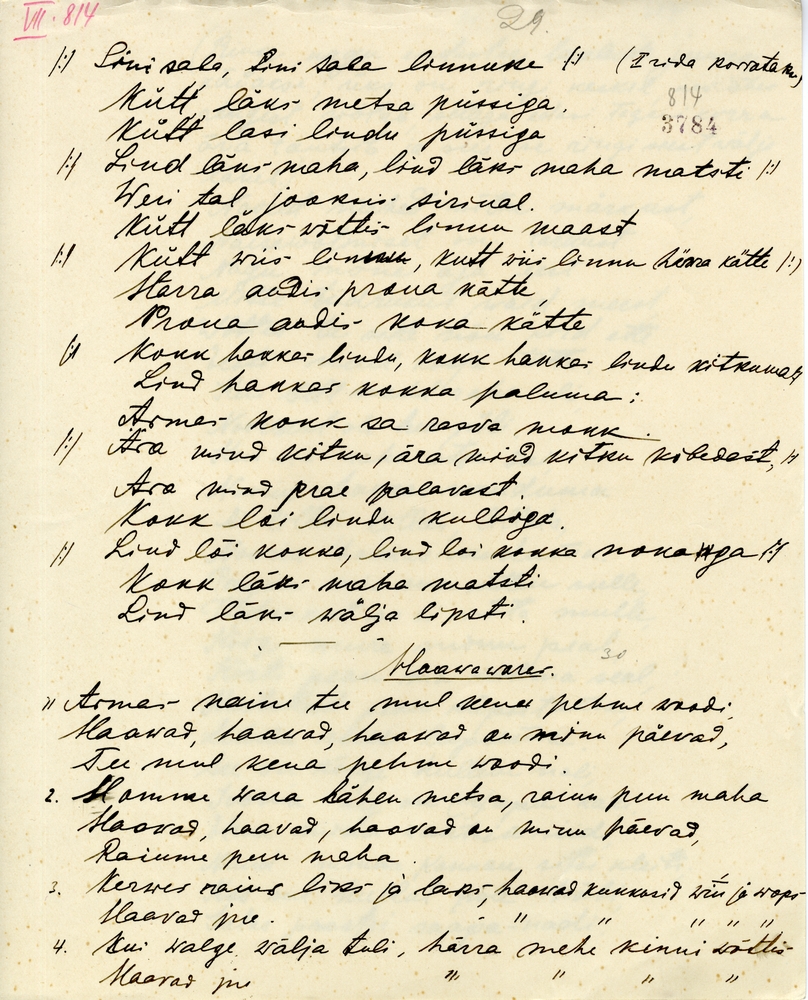 VII. 814
29.
|:| Sini saba, Sini saba linnuke |:| (I rida korratakse)
Kütt läks metsa püssiga.
814
Kütt lasi lindu püssiga
3784
|:| Lind läks maha, lind läks maha matsti |:|
Weri tal jooksis sirinal.
Kütt läks wõttis linnu maast
|:| Kütt wiis linnu, kütt wiis linnu härra kätte |:|
Härra andis proua kätte,
Proua andis koka kätte
|:| Kokk hakkas lindu, kokk hakkas lindu kitkuma |:|
Lind hakkas kokka paluma:
Armas kokk sa rasva mokk.
|:| Ära mind kitku, ära mind kitku kibedast, |:|
Ära mind prae palavast.
Kokk lõi lindu kulbiga.
|:| Lind lõi kokka, lind lõi kokka nokaga |:|
Kokk läks maha matsti
Lind läks wälja lipsti.
Haawawares. 30
1) Armas naine tee mul kena pehme woodi,
Haawad, haawad, haawad on minu päevad,
Tee mul kena pehme woodi.
2. Homme wara lähen metsa, raiun puu maha
Haavad, haavad, haavad on minu päevad,
Raiume puu maha.
3. Kerwes raius liks ja laks, haawad kukkusid wiis ja wops
Haavad jne. " " " " " "
4. Kui walge wälja tuli, härra mehe kinni wõttis
Haavad jne " " " "